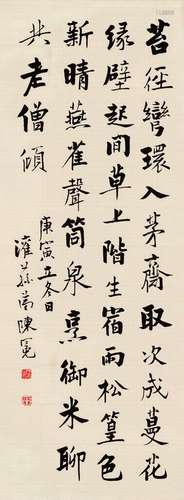 苔徑彎環入茅齋取次成蔓花
緣壁起間草上階生宿雨松篁色
新晴燕雀聲筒泉烹御米聊
共老僧傾
庚寅立冬日